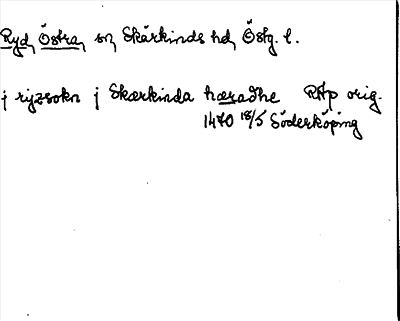 Ryd, Östra, sn, Skärkinds hd, Östg. l.
j ryzsokn j Skærkinda hæradhe RAp orig.
1470 18/5 Söderköping